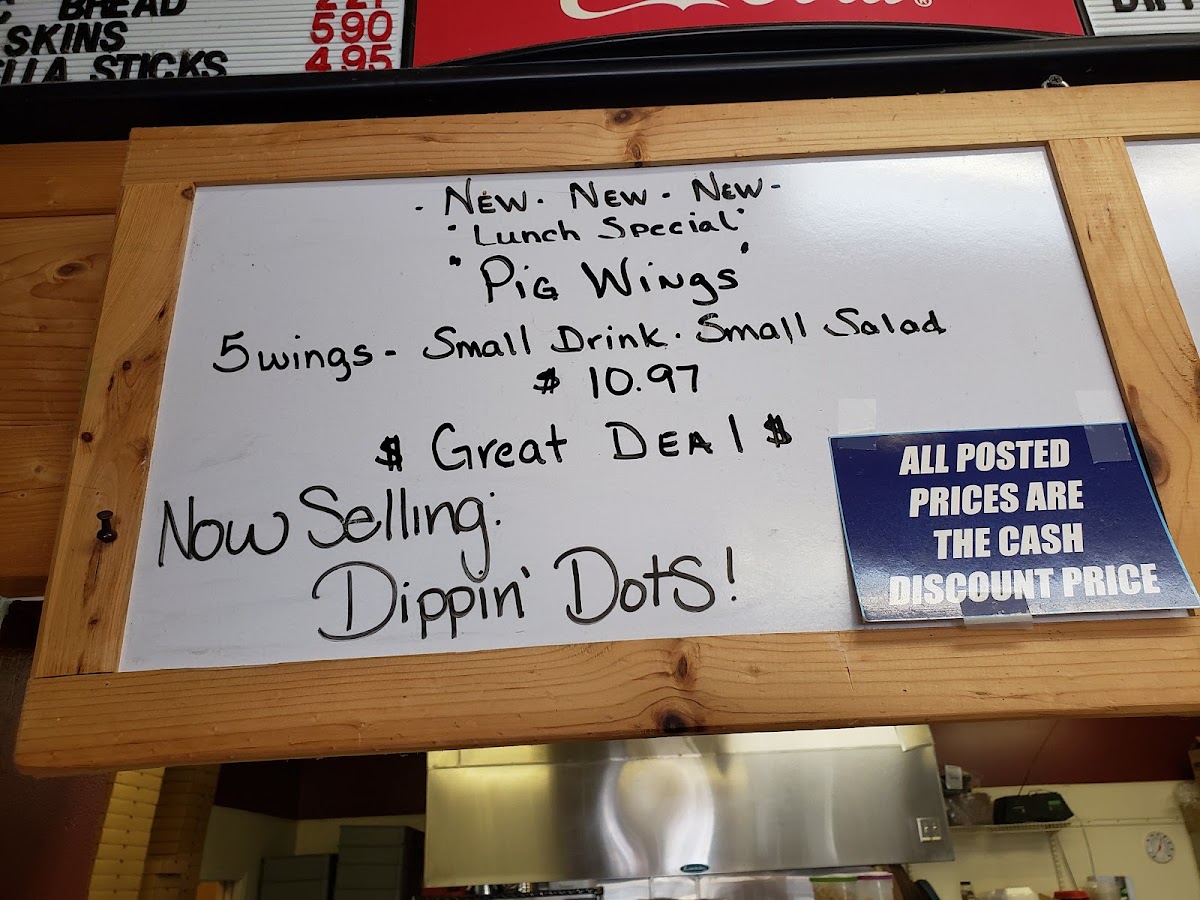 BREAD
SKINS 590
STICKS 495
- NEW. NEW. NEW-
"Lunch Special"
"PiG WiNgs"
5 wings - Small Drink. Small Salad
$ 10.97
$ Great DEAl $
Now Selling:
Dippin' Dots!
ALL POSTED
PRICES ARE
THE CASH
DISCOUNT PRICE